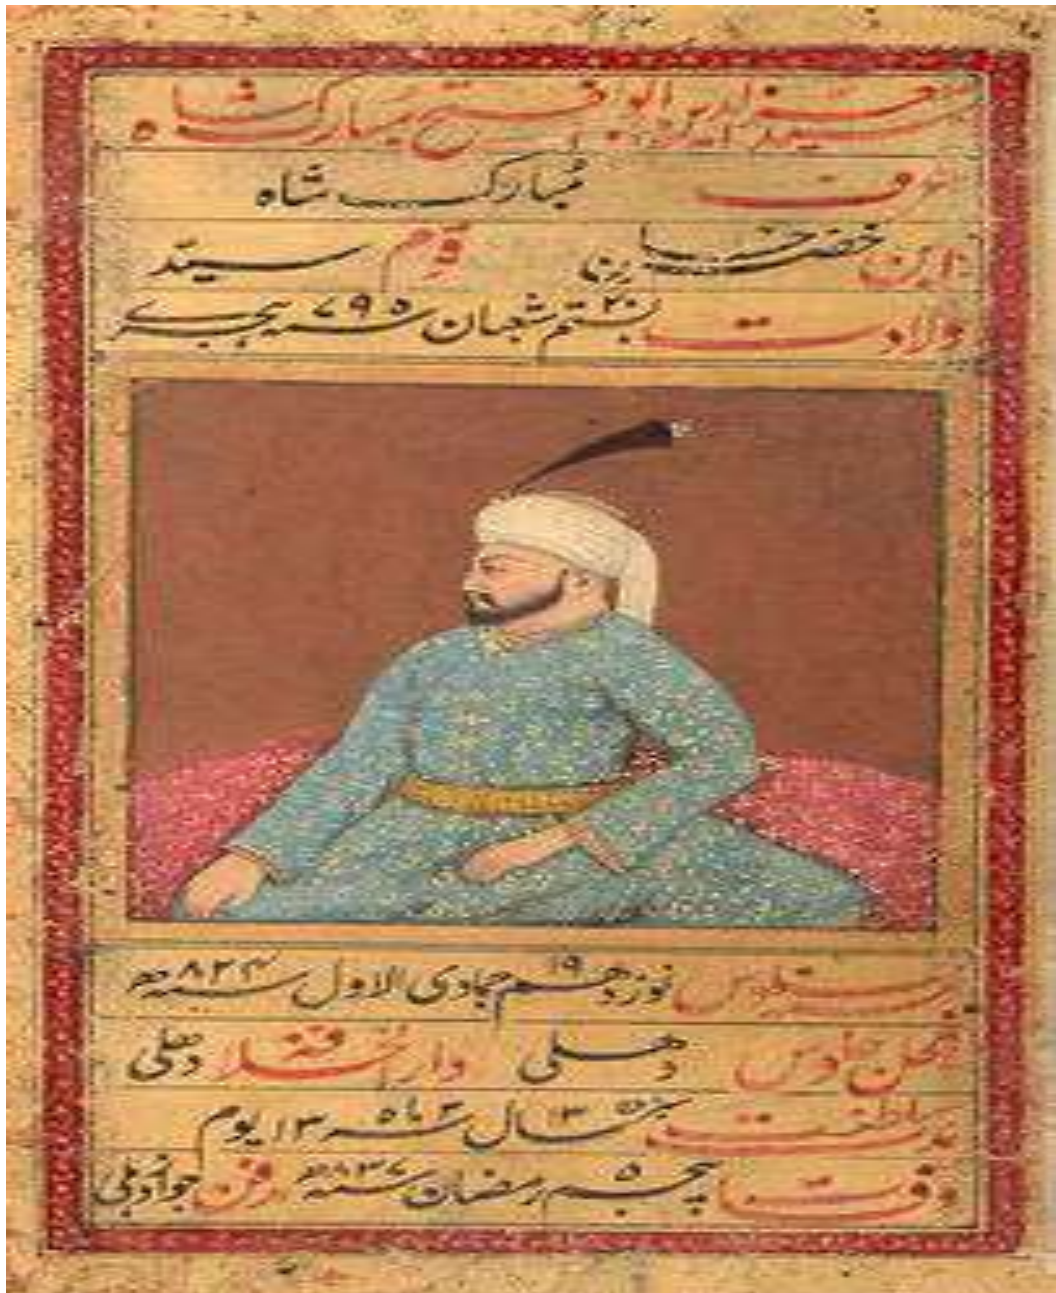 ابوالفتح مبارک شاه
عرف مبارک شاه
ابن خضر خان قوم سید
ولادت بستم ۲۰ شعبان سنه ۷۹۵ هجری
جلوس نوزدهم ۱۹ جمادی الاول سنه ۸۲۴ ھ
جلوس دهلی دارالخلافه دهلی
مدت سلطنت ۱۳ سال ۳ ماه ۱۳ یوم
وفات پنجم ۵ رمضان سنه ۸۳۷ ھ دفن جوار دهلی